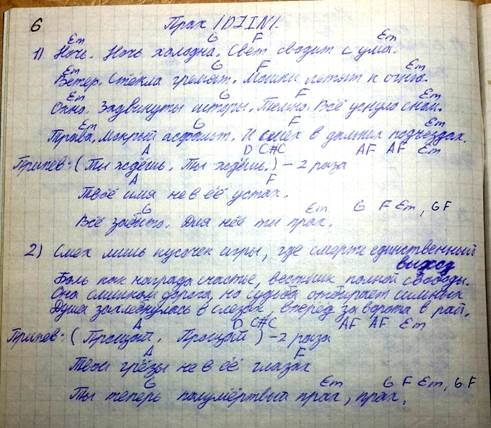 6 Прах /DJIN/.
Em G F Em
1) Ночь. Ночь холодна. Свет сводит с ума.
Em G F Em
Ветер. Стёкла гремят. Мошки летят к огню.
Em G F Em
Окно. Задвинуты шторы. Темно. Всё уснуло сном.
Em G F Em
Трава, мокрый асфальт. И смех в дальних подъездах.
A D C#C AF AF Em
Припев: (Ты ждёшь. Ты ждёшь.) – 2 раза
A F
Твоё имя не в её устах.
G Em G F Em, G F
Всё забыто. Для неё ты прах.
2) Смех лишь кусочек игры, где смерть единственный
выход
Боль как награда счастие, вестник полной свободы.
Она слишком дорога, но судьба отбирает сильных
Душа захлебнулась в слезах. Вперёд за ворота в рай.
A D C#C AF AF Em
Припев: (Прощай, Прощай) – 2 раза
A F
Твои грёзы не в её глазах
G Em G F Em, G F
Ты теперь полумёртвый прах, прах.